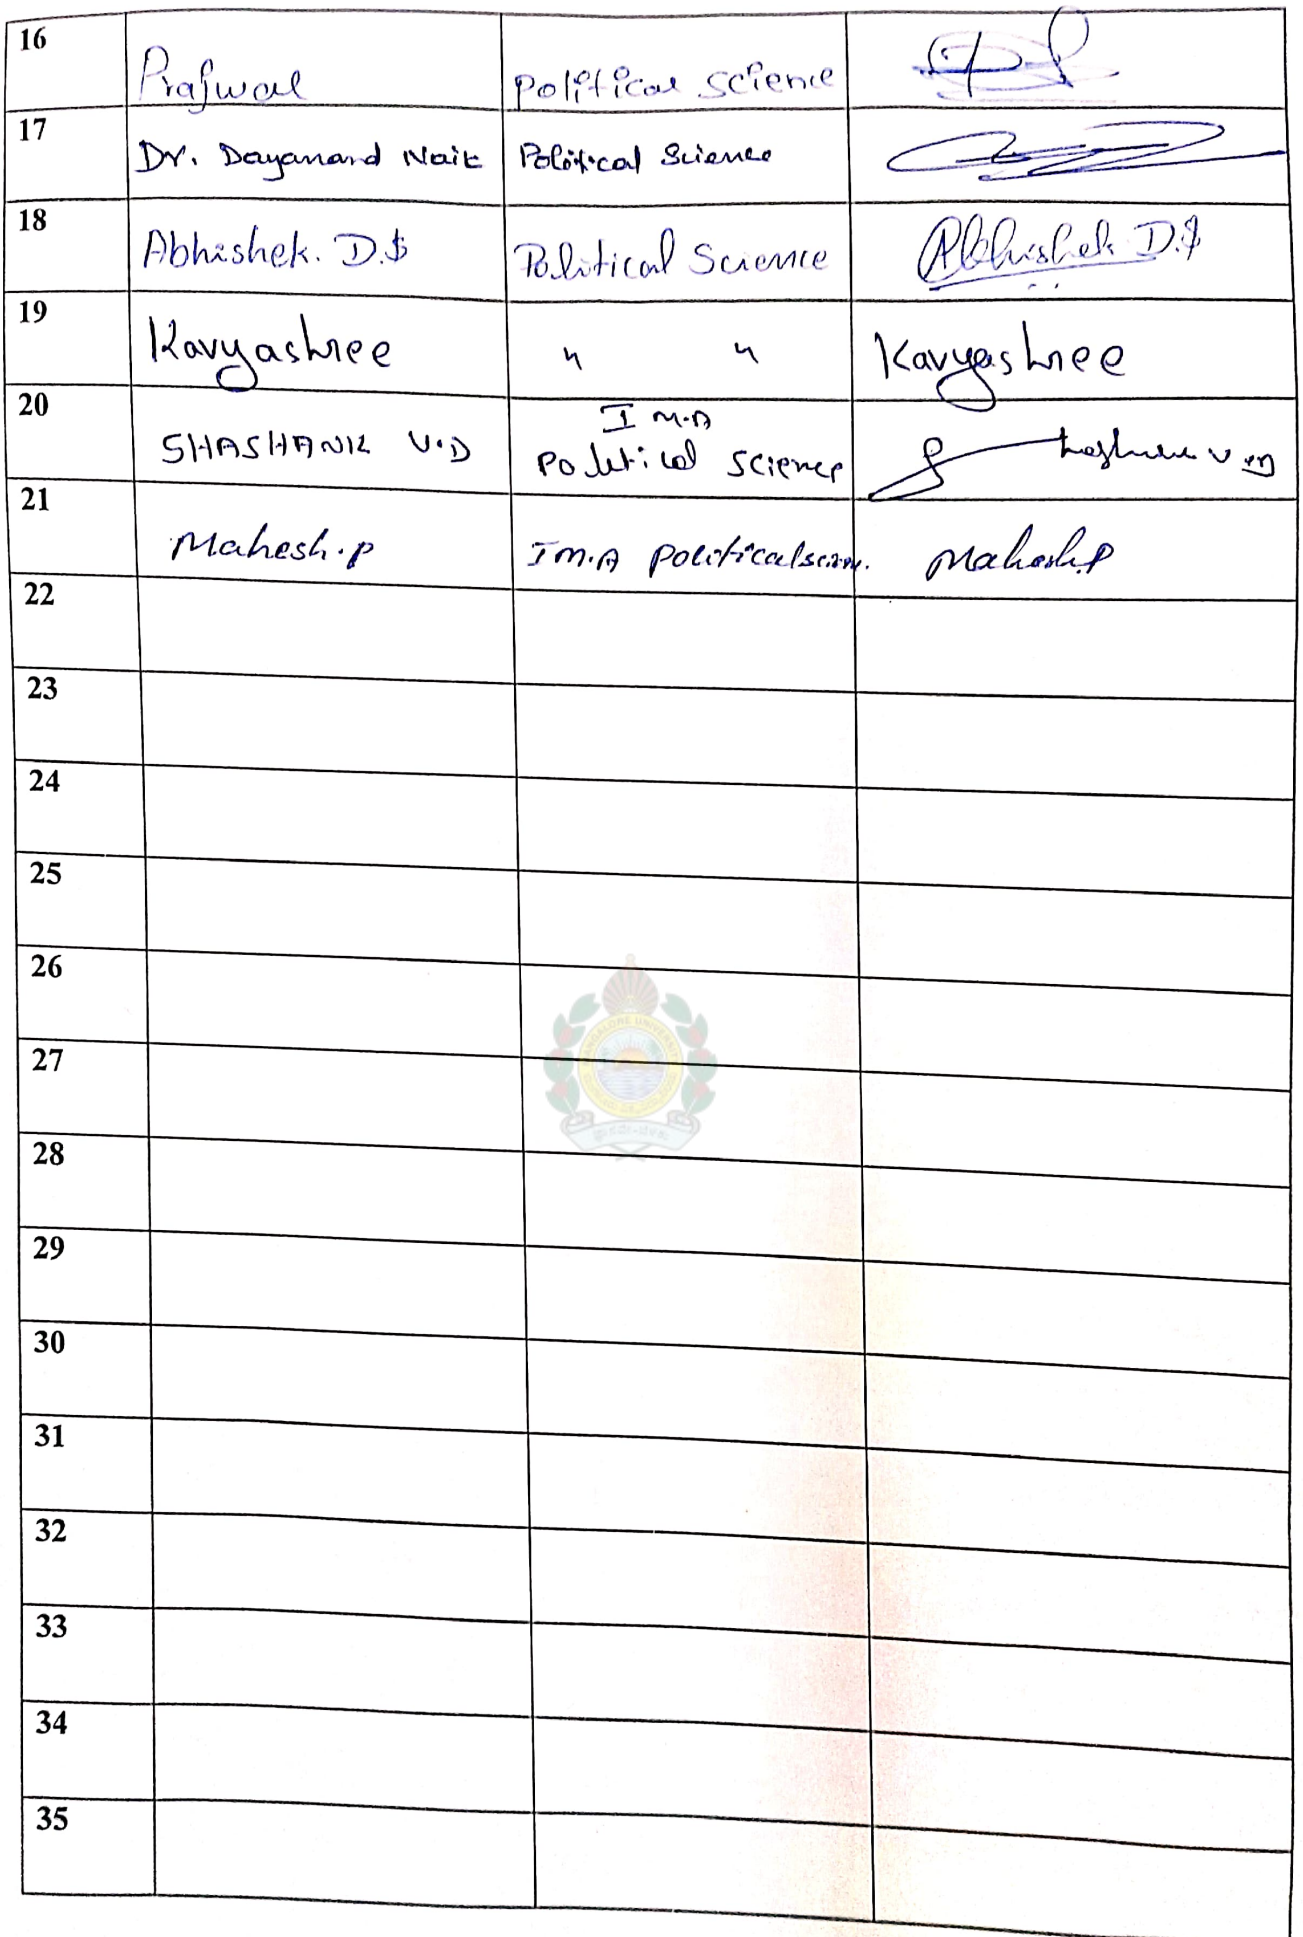 16 Prajwal Political Science
17 Dr. Dayanand Naik Political Science
18 Abhishek. D.S Political Science Abhishek D.S
19 Kavyashree " " Kavyashree
I M.A
20 SHASHANK V.D Political Science
21 Mahesh.P I M.A Political Mahesh.P
22
23
24
25
26
MANGALORE UNIVERSITY
27
28
29
30
31
32
33
34
35